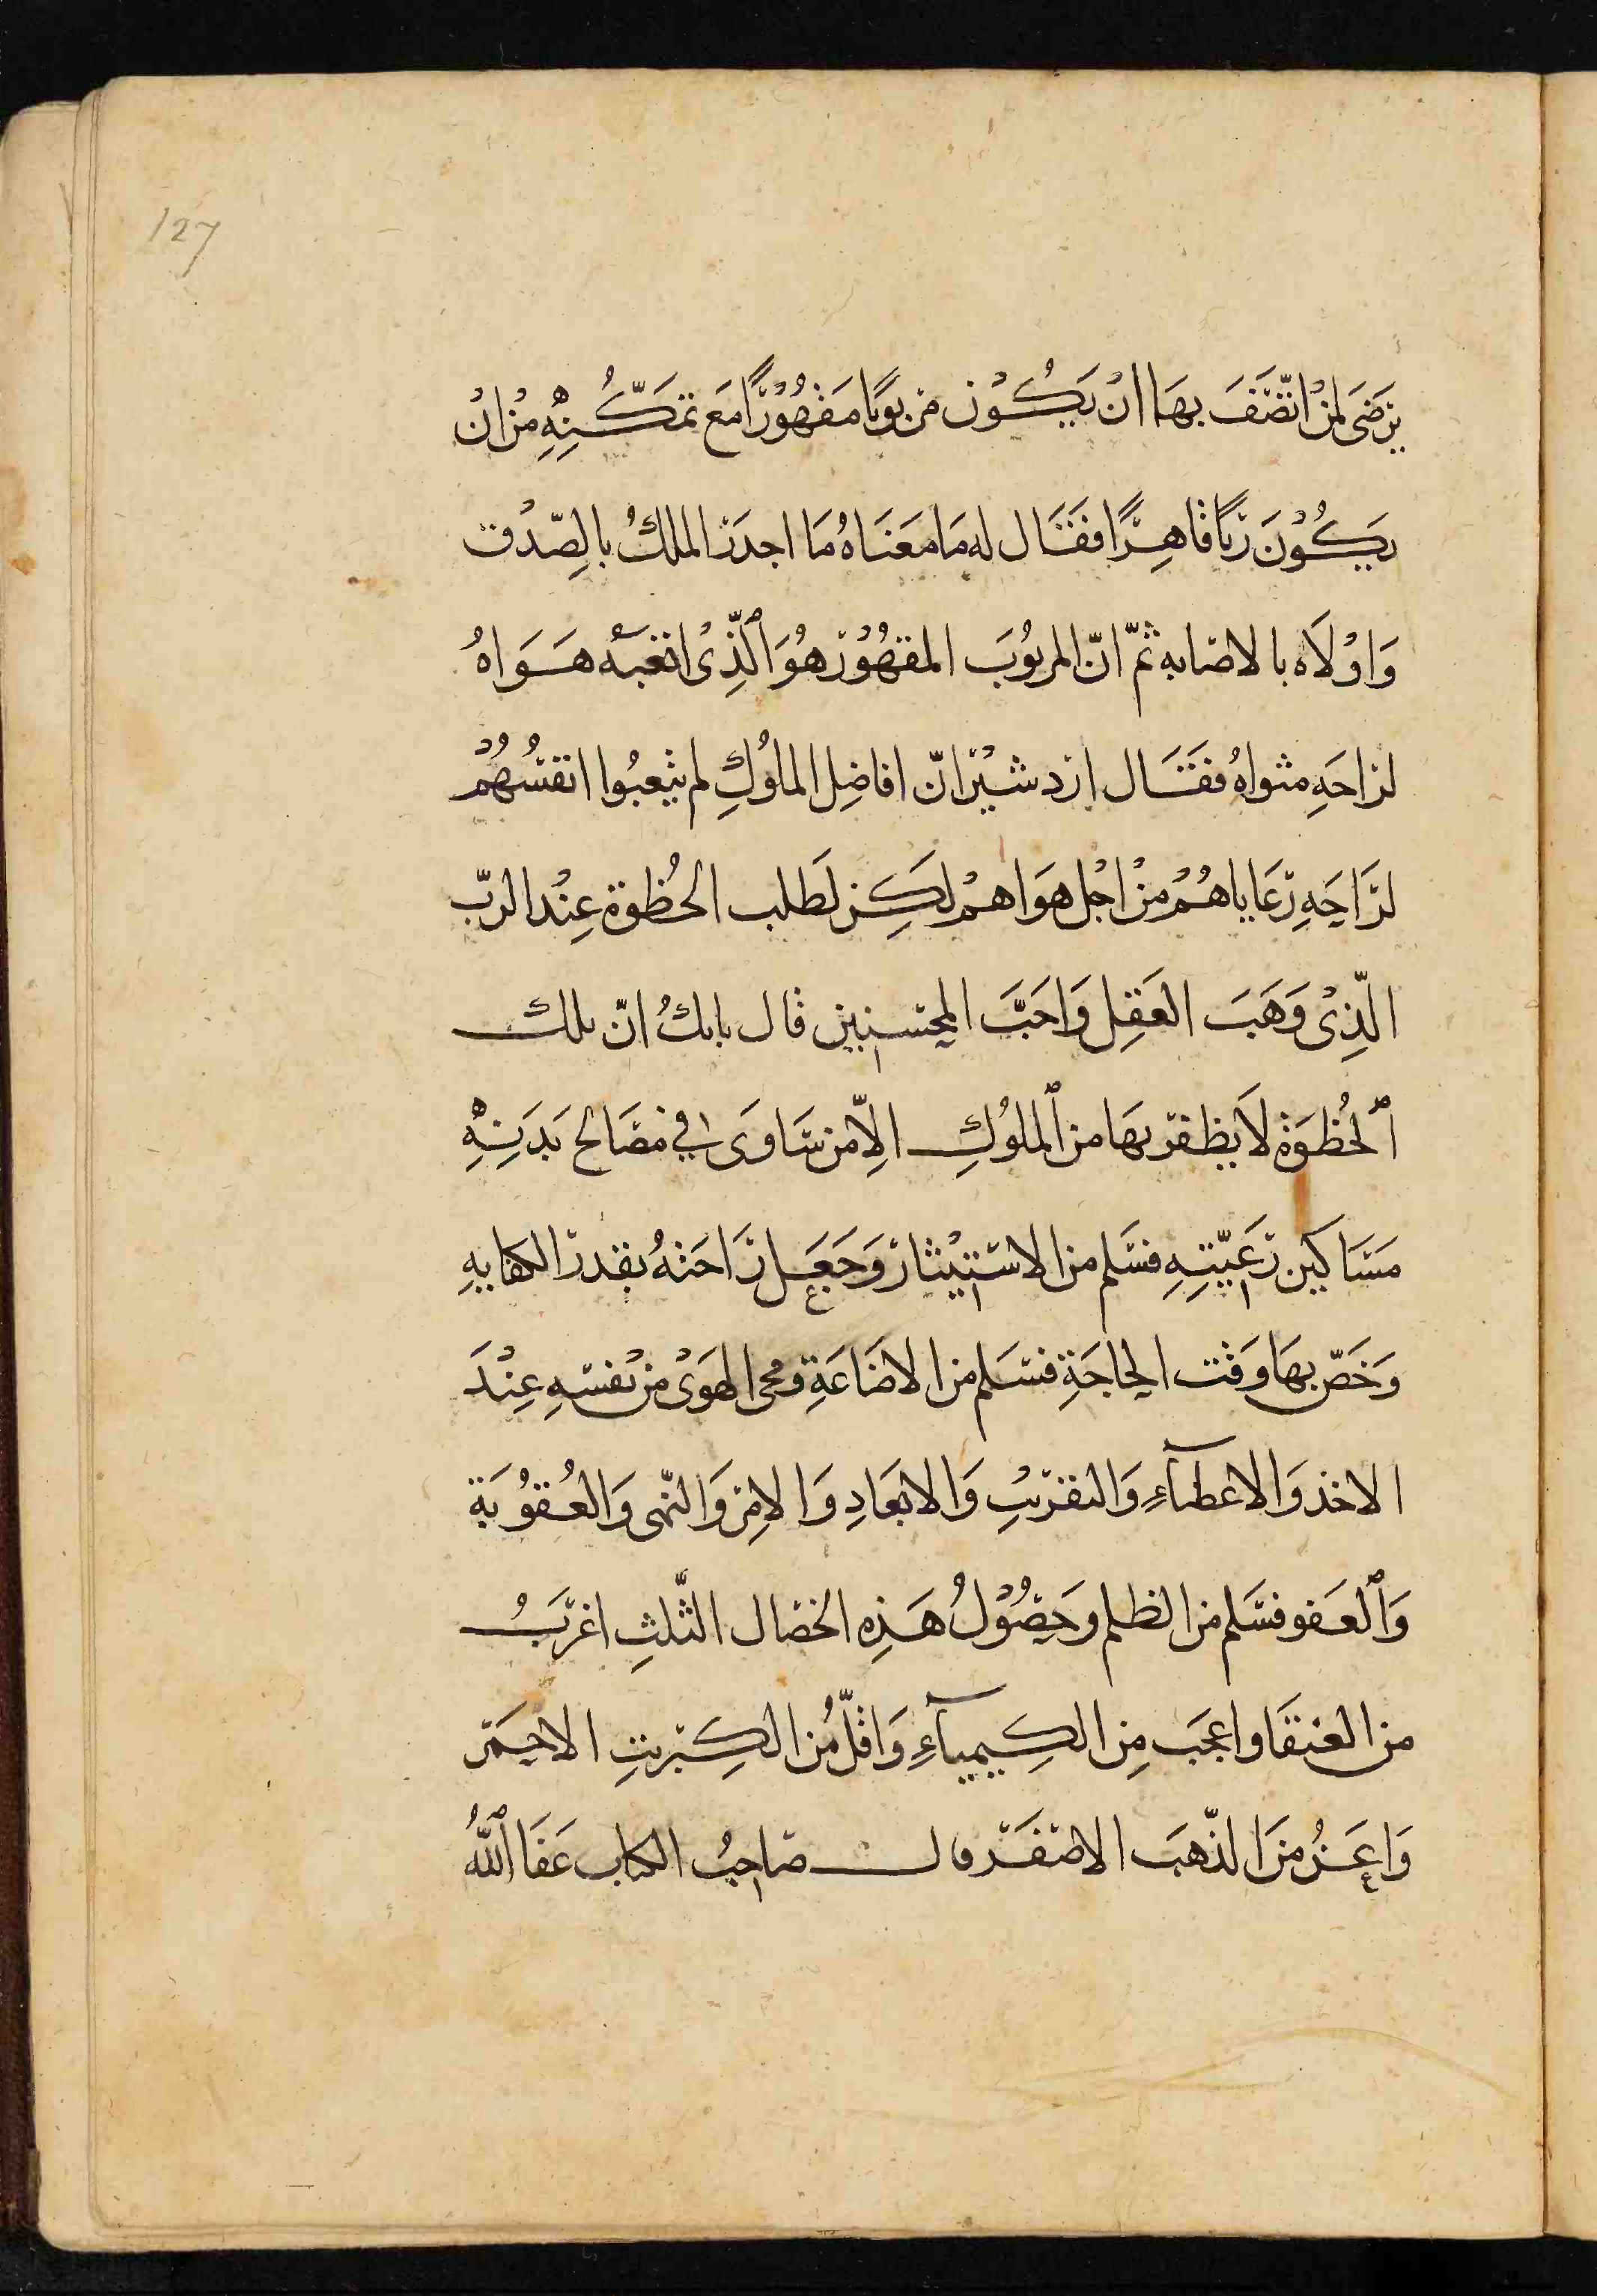 127
يَرْضَى لِمَنْ اتّصَفَ بِهَا انْ يَكُوْن مَرْبُوبًا مَقْهُوْرًا مَعَ تمَكُّنِهِ مِنْ انْ
يَكُوْنَ رَبًّا قَاهِرًا فَقَال له مَا مَعَنَاهُ مَا اجدَرَ الملكُ بالصِّدْق
وَاوْلَاه بالاصَابه ثمّ انّ المربُوبَ المقهُوْر هُوَ ٱلَّذِى اتعَبَه هَوَاهُ
لرَاحَةِ مثواهُ فقَال ازدشيْر انّ افاضِل الملُوكِ لم يتعبُوا انفسُهُمْ
لرَاحَةِ رَعَاياهُمْ مِنْ اجْل هَوَاهمْ لكِن لطَلب الحُظوة عِنْد الربّ
الّذِى وَهَبَ العَقل وَاحَبَّ المحسنين قال بابكُ انّ تلك
ٱلحُظوَة لَا يظفر بهَا من ٱلملوُكِ الِاّ من سَاوَى في مصَالح بَدَنِهِ
مَسَاكين رَعيّتِهِ فسَلم من الاستيْثار وَجَعَل رَاحَتهُ بقدر الكفايهِ
وَخَصّ بهَا وَقت الحاجَةِ فسَلم من الاضَاعَةِ ومحى الهَوَىْ من نفسْهِ عِنْدَ
الاخذ وَالاعطآءِ وَالتقريْبِ وَالابعَادِ وَالامِر وَالنّهى وَالعُقوُبَة
وَٱلعَفو فسَلم من الظلم وحصُوْلُ هَذِه الخصَال الثّلثِ اغرَبُ
من العنقَا واعجَب مِن الكِيميآءِ وَاقلُّ من الكِبْريتِ الاحمَر
وَاعَزُّ مِنَ الذّهَبَ الاصفَر قال صَاحِبُ الكتاب عَفَا ٱللّهُ